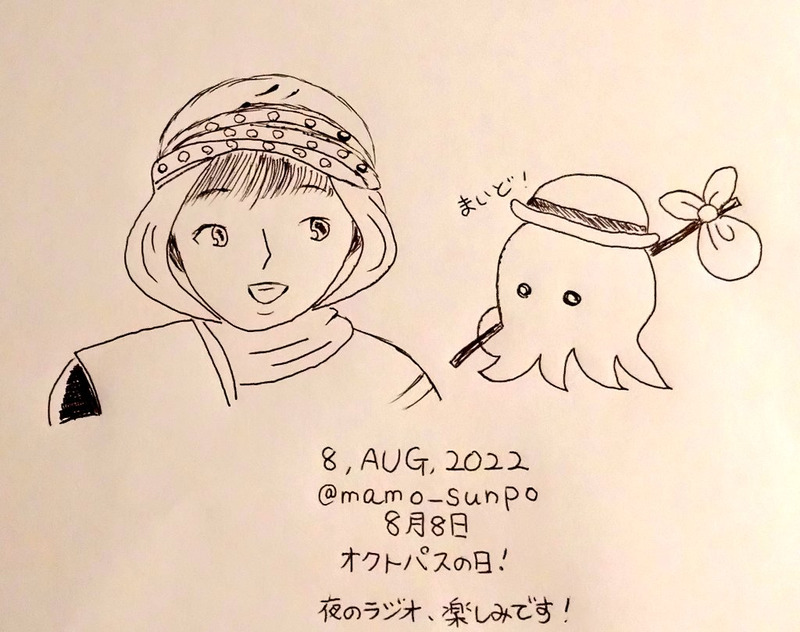 まいど!
8, AUG, 2022
@mamo_sunpo
8月8日
オクトパスの日!
夜のラジオ、楽しみです!